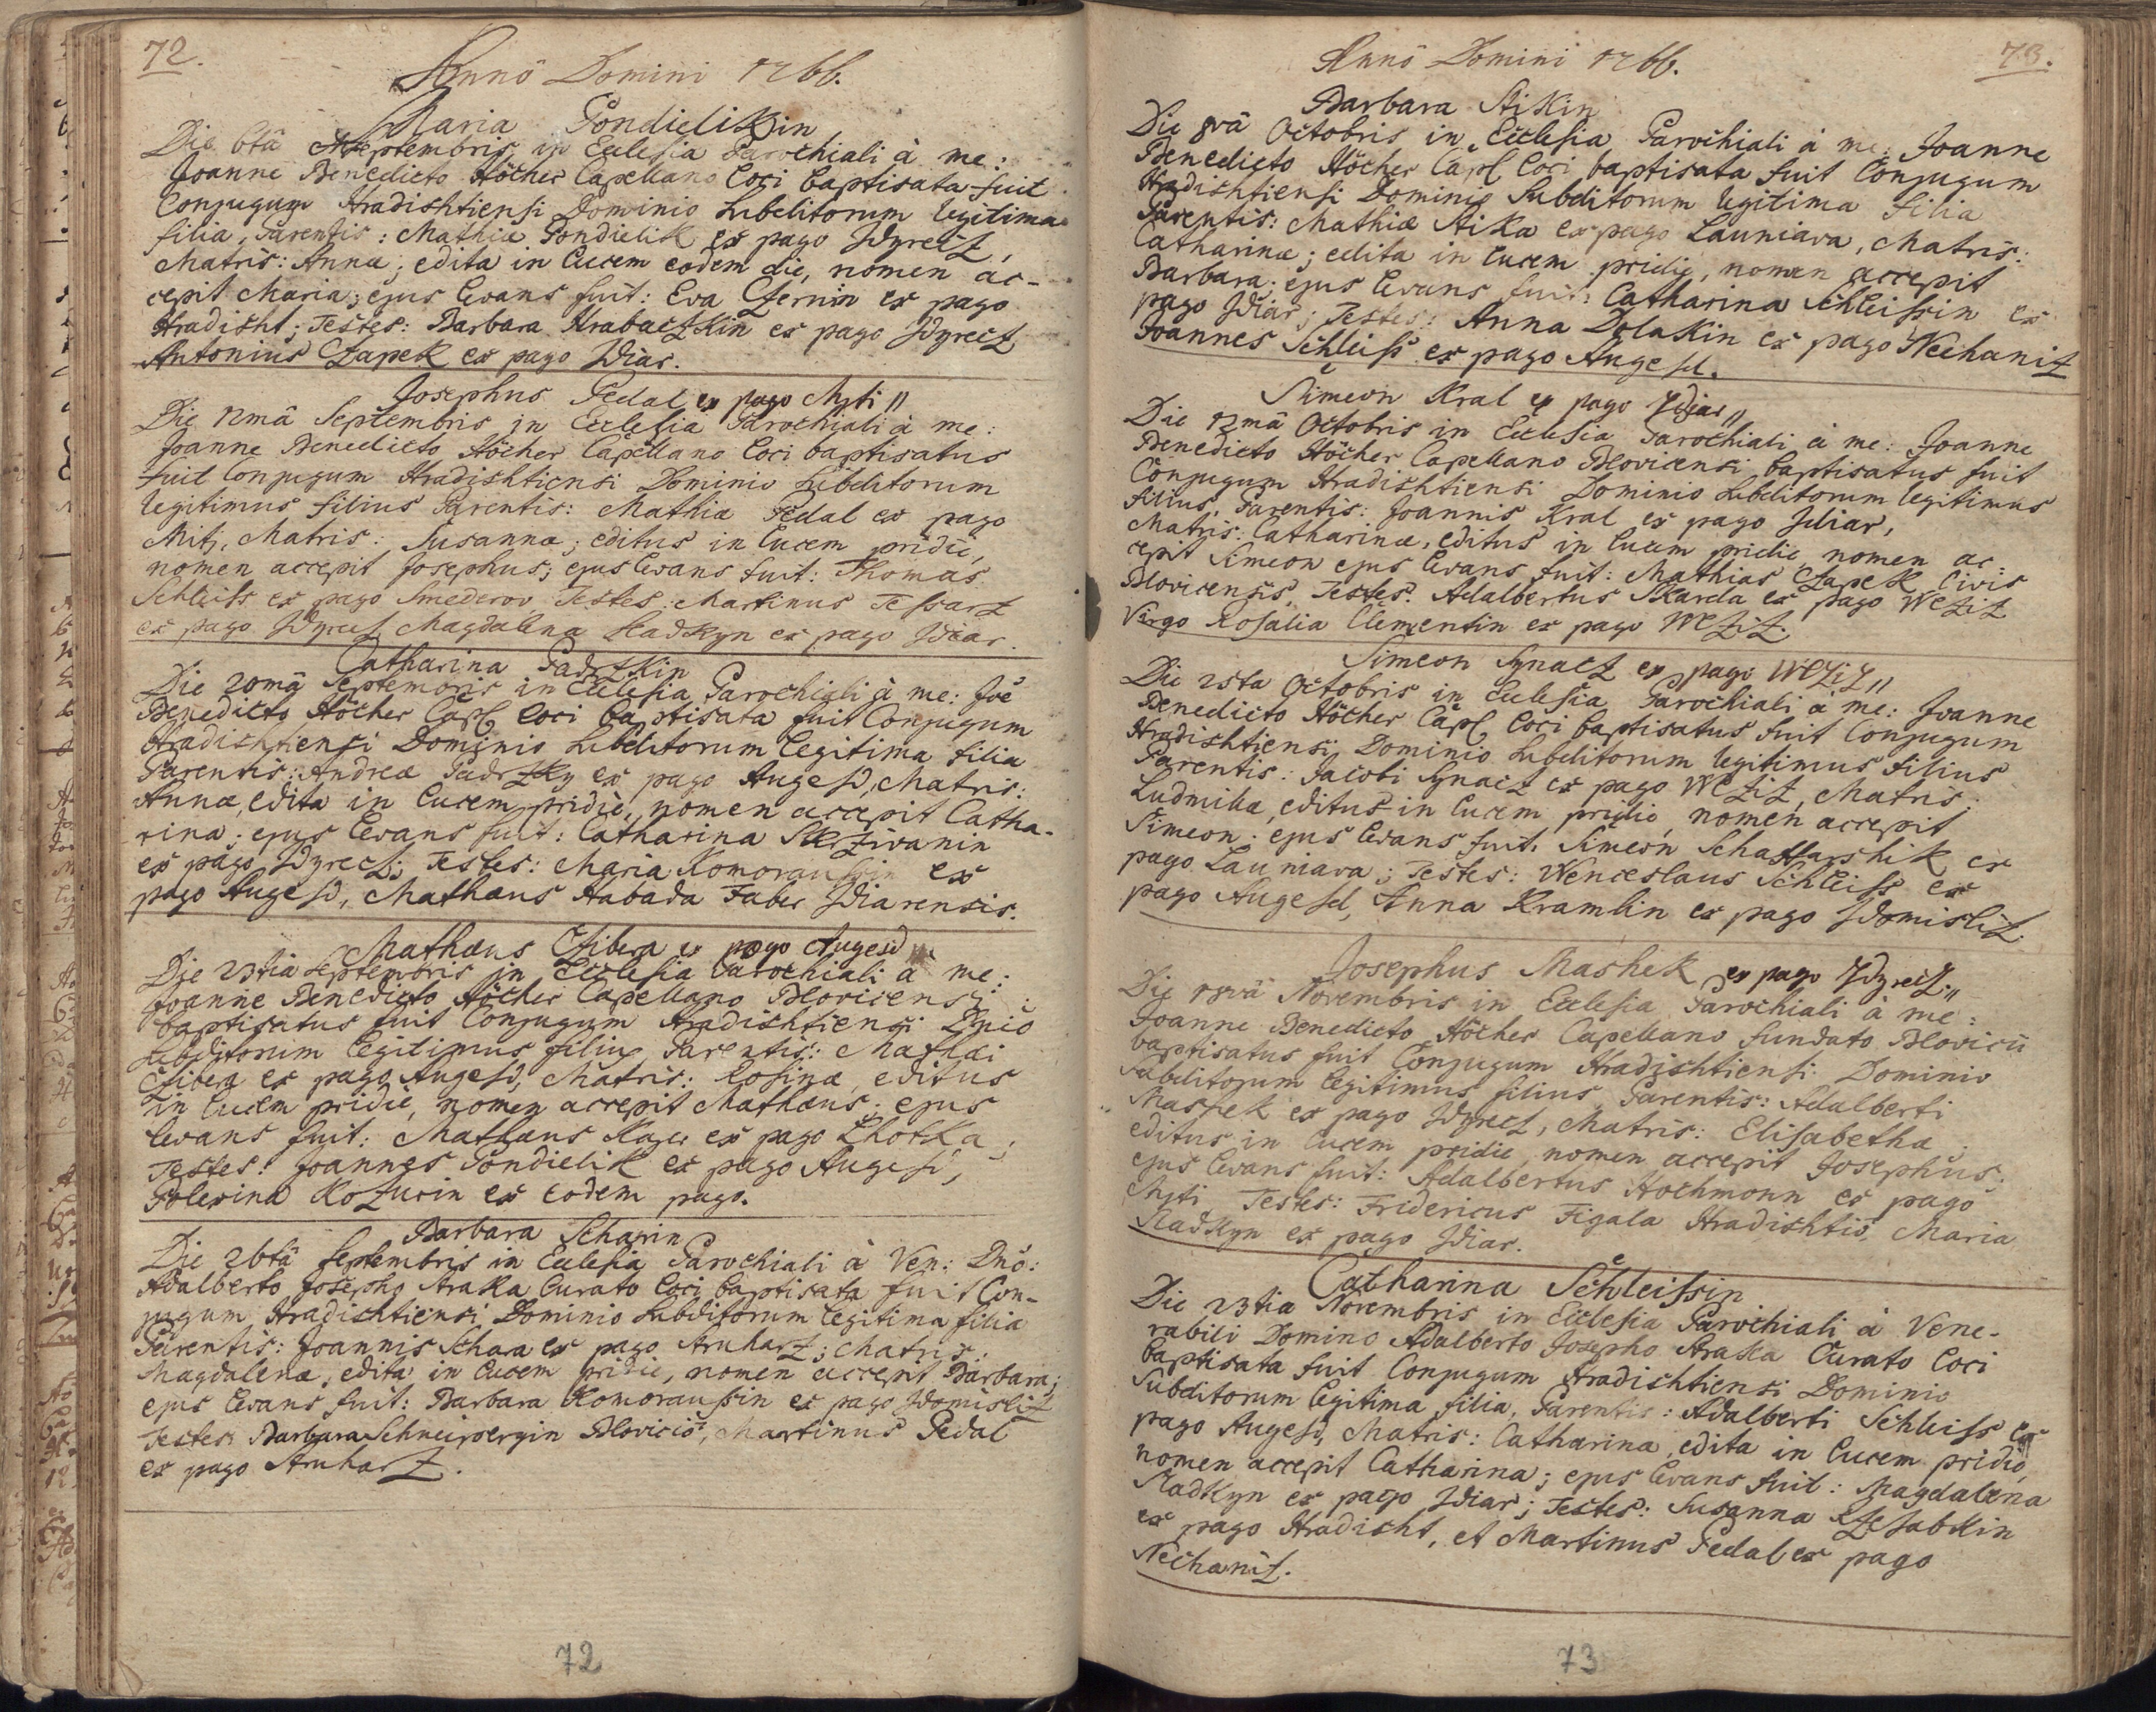 72.
Annô Domini 1766.
Maria Pondielikin
Die 6tâ Septembris in Ecclesia Parochiali à me:
Joanne Benedicto Höcher Capellano Loci baptisata fuit
Conjugum Hradishtiensi Dominio Subditorum legitima
filia, Parentis: Mathiæ Pondielik ex pago Wdzrecz,
Matris: Annæ; edita in lucem eodem die, nomen ac-
cepit Maria; ejus levans fuit: Eva Czernin ex pago
Hradisht; Testes: Barbara Hrabaczkin ex pago Wdzrecz
Antonius Czapek ex pago Zdiar.
Josephus Pedal ex pago Mti//
Die 12mâ Septembris in Ecclesia Parochiali à me:
Joanne Benedicto Höcher Capellano Loci baptisatus
fuit Conjugum Hradishtiensi Dominio Subditorum
legitimus filius Parentis: Mathiæ Pedal ex pago
Mitj, Matris: Susannæ; editus in lucem pridie,
nomen accepit Josephus; ejus levans fuit: Thomas
Schleiss ex pago Smederov, Testes: Martinus Tessarz
ex pago Wdzrecz Magdalena Hadkyn ex pago Zdiar.
Catharina Padrzkin
Die 20mâ Septembris in Ecclesia Parochiali à me: Joe
Benedicto Höcher Capl Loci baptisata fuit Conjugum
Hradishtiensi Dominio Subditorum legitima filia
Parentis: Andreæ Padrzky ex pago Augesd, Matris:
Annæ, edita in lucem pridie, nomen accepit Catha-
rina; ejus levans fuit: Catharina Skrzivanin
ex pago Wdzrecz; Testes: Maria Komoraussin ex
pago Augesd, Mathæus Habada Faber Zdiarensis.
Mathæus Czibera ex pago Augesd
Die 23tia Septembris in Ecclesia Parochiali à me:
Joanne Benedicto Höcher Capellano Blovicensi
baptisatus fuit Conjugum Hradishtiensi Dnio
Subditorum legitimus filius, Parentis: Mathæi
Czibera ex pago Augesd, Matris: Rosinæ, editus
in lucem pridie, nomen accepit Mathæus; ejus
levans fuit: Mathæus Kager ex pago Lhotka;
Testes: Joannes Pondielik ex pago Augesd,
Polexina Kozucin ex eodem pago.
Barbara Scharin
Die 26tâ Septembris in Ecclesia Parochiali à Ven: Dnô:
Adalberto Josepho Straka Curato Loci baptisata fuit Con-
jugum Hradishtiensi Dominio Subditorum legitima filia
Parentis: Joannis Schara ex pago Struharz; Matris:
Magdalenæ, edita in lucem pridie, nomen accepit Barbara;
ejus levans fuit: Barbara Komoraussin ex pago Zdomisliz
Testes Barbara Schneipergin Blovicio, Martinus Pedal
ex pago Struharz.
72
73.
Annô Domini 1766.
Barbara Stikin
Die 8vâ Octobris in Ecclesia Parochiali à me: Joanne
Benedicto Höcher Capl Loci baptisata fuit Conjugum
Hradishtiensi Dominio Subditorum legitima filia
Parentis: Mathiæ Stika ex pago Launiava, Matris:
Catharinæ; edita in lucem pridie, nomen accepit
Barbara; ejus levans fuit: Catharina Schleissin ex
pago Zdiar; Testes: Anna Dolakin ex pago Nechaniz
Joannes Schleiss ex pago Augesd.
Simeon Kral ex pago Zdiar//
Die 12mâ Octobris in Ecclesia Parochiali à me: Joanne
Benedicto Höcher Capellano Blovicensi baptisatus fuit
Conjugum Hradishtiensi Dominio Subditorum legitimus
filius, Parentis: Joannis Kral ex pago Zdiar,
Matris: Catharinæ, editus in lucem pridie, nomen ac:
cepit Simeon ejus levans fuit: Mathias Czapek Civis
Blovicensis, Testes: Adalbertus Skarda ex pago Weziz
Virgo Rosalia Clementin ex pago Weziz.
Simeon Synacz ex pago Weziz//
Die 21sta Octobris in Ecclesia Parochiali à me: Joanne
Benedicto Höcher Capl Loci baptisatus fuit Conjugum
Hradishtiensi Dominio Subditorum legitimus filius
Parentis: Jacobi Synacz ex pago Weziz, Matris:
Ludmillæ, editus in lucem pridie, nomen accepit
Simeon: ejus levans fuit: Simeon Schaffarshik ex
pago Launiava; Testes: Wenceslaus Schleiss ex
pago Augesd, Anna Kramlin ex pago Zdomisliz.
Josephus Mashek ex pago Wdzrecz.//
Die 18vâ Novembris in Ecclesia Parochiali à me:
Joanne Benedicto Höcher Capellano fundato Blovicii
baptisatus fuit Conjugum Hradishtiensi Dominio
Subditorum legitimus filius, Parentis: Adalberti
Mashek ex pago Wdzrecz, Matris: Elisabethæ,
editus in lucem pridie, nomen accepit Josephus:
ejus levans fuit: Adalbertus Hochmonn ex pago
Mti Testes: Fridericus Figala Hradishtiô, Maria
Hadkyn ex pago Zdiar.
Catharina Schleissin
Die 23tia Novembris in Ecclesia Parochiali à Vene-
rabili Domino Adalberto Josepho Straka Curato Loci
baptisata fuit Conjugum Hradishtiensi Dominio
Subditorum legitima filia, Parentis: Adalberti Schleiss ex
pago Augesd, Matris: Catharinæ, edita in lucem pridie,
nomen accepit Catharina; ejus levans fuit: Magdalena
Hadkyn ex pago Zdiar; Testes: Susanna Rzesabkin
ex pago Hradisht, et Martinus Pedal ex pago
Nechaniz.
73